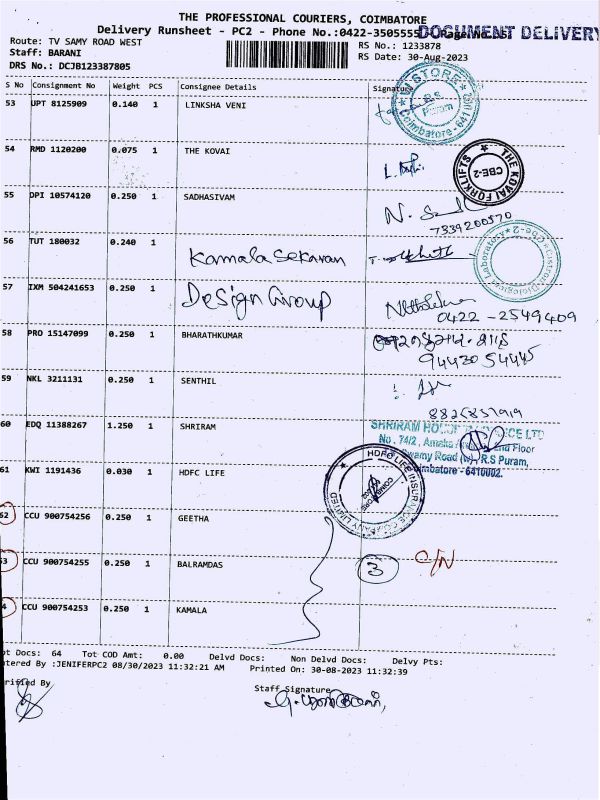 THE PROFESSIONAL COURIERS, COIMBATORE
Delivery Runsheet - PC2 - Phone No.:0422-3505555
DOCUMENT DELIVERY
Route: TV SAMY ROAD WEST
RS No.: 1233878
Staff: BARANI
RS Date: 30-Aug-2023
DRS No.: DCJB123387805
S No Consignment No Weight PCS Consignee Details Signature
53 UPT 8125909 0.140 1 LINKSHA VENI
STORE R.S Puram Coimbatore - 641
54 RMD 1120200 0.075 1 THE KOVAI
THE KOVAI FORKLIFTS CBE-2
55 DPI 10574120 0.250 1 SADHASIVAM
7339200570
56 TUT 180032 0.240 1 Kamala Sekaran
57 IXM 504241653 0.250 1 Design Group
0422-2549409
58 PRO 15147099 0.250 1 BHARATHKUMAR
9443054445
59 NKL 3211131 0.250 1 SENTHIL
60 EDQ 11388267 1.250 1 SHRIRAM
SHRIRAM LTD
No. 74/2, Floor
Swamy Road R.S Puram,
Coimbatore - 6410002.
61 KWI 1191436 0.030 1 HDFC LIFE
HDFC LIFE INSURANCE COMPANY LIMITED
62 CCU 900754256 0.250 1 GEETHA
63 CCU 900754255 0.250 1 BALRAMDAS
3 O/N
4 CCU 900754253 0.250 1 KAMALA
ot Docs: 64 Tot COD Amt: 0.00 Delvd Docs: Non Delvd Docs: Delvy Pts:
ntered By :JENIFERPC2 08/30/2023 11:32:21 AM Printed On: 30-08-2023 11:32:39
erified By
Staff Signature